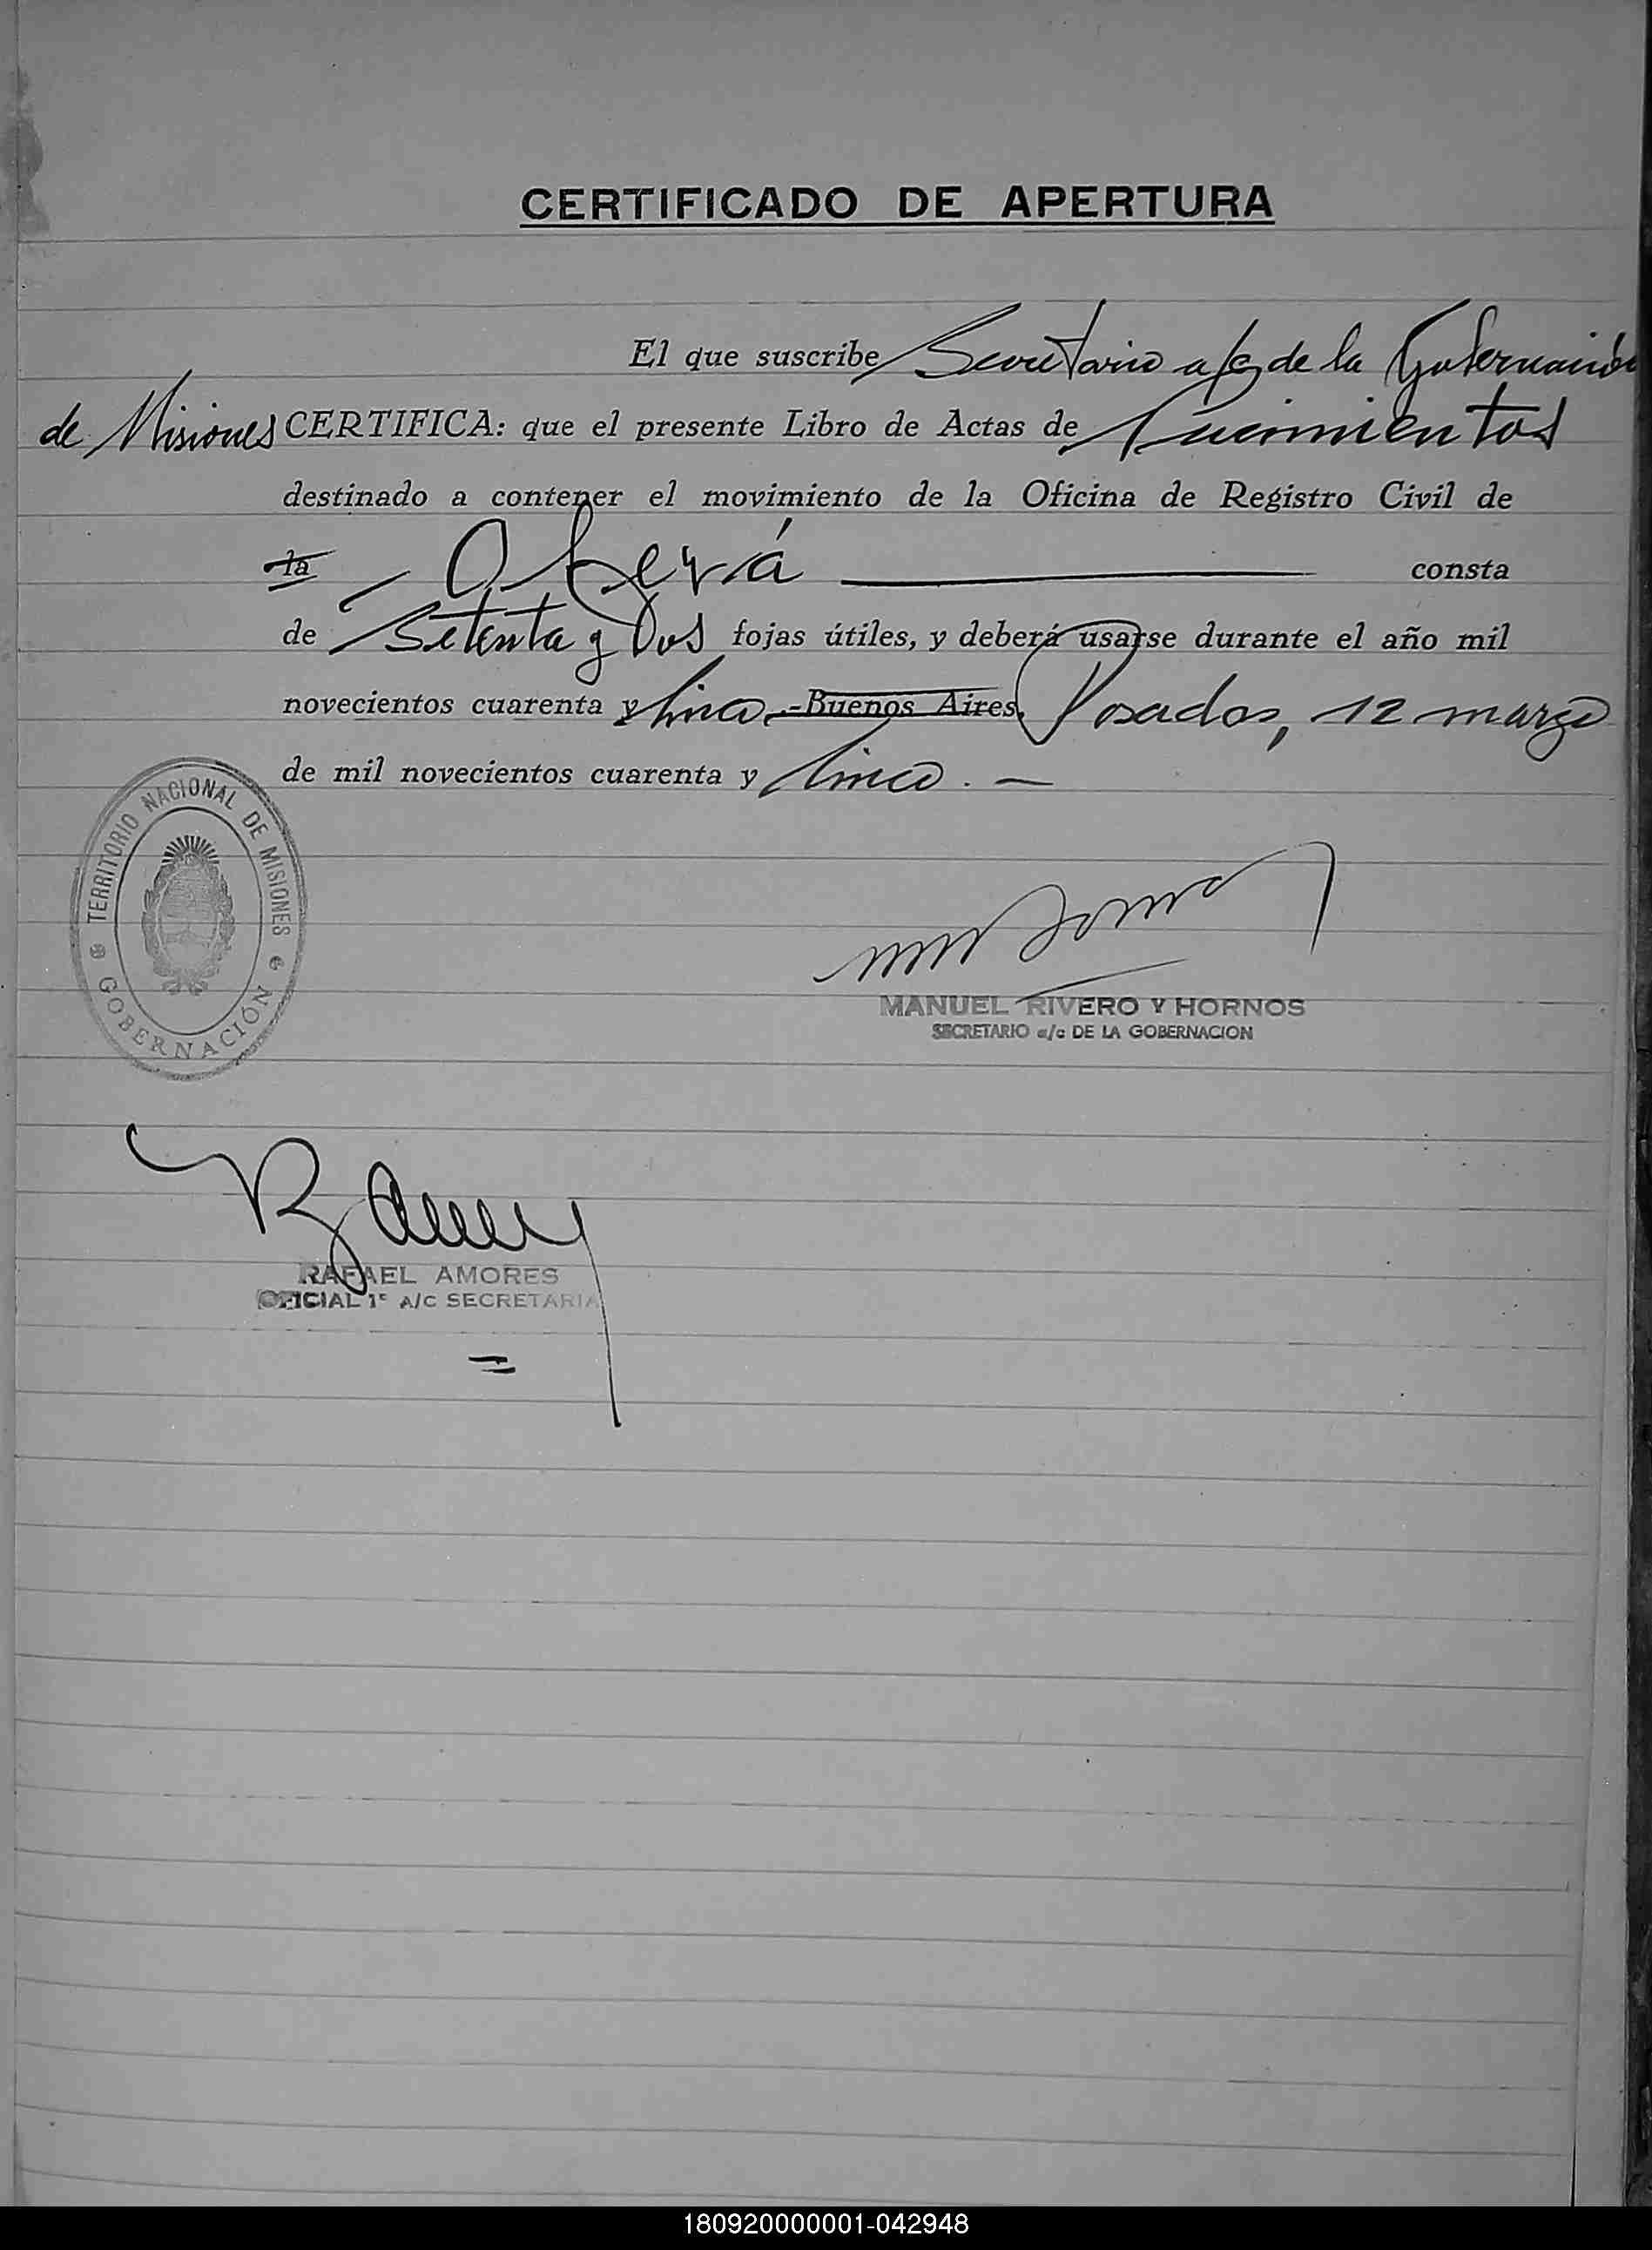 CERTIFICADO DE APERTURA
El que suscribe Secretario a/c de la Gobernación
de Misiones CERTIFICA: que el presente Libro de Actas de Nacimientos
destinado a contener el movimiento de la Oficina de Registro Civil de
la Oberá consta
de Setenta y Dos fojas útiles, y deberá usarse durante el año mil
novecientos cuarenta y cinco.-Buenos Aires, Posadas, 12 marzo
de mil novecientos cuarenta y cinco.-
TERRITORIO NACIONAL DE MISIONES
GOBERNACIÓN
MANUEL RIVERO Y HORNOS
SECRETARIO a/c DE LA GOBERNACION
RAFAEL AMORES
OFICIAL 1º A/C SECRETARIA
180920000001-042948